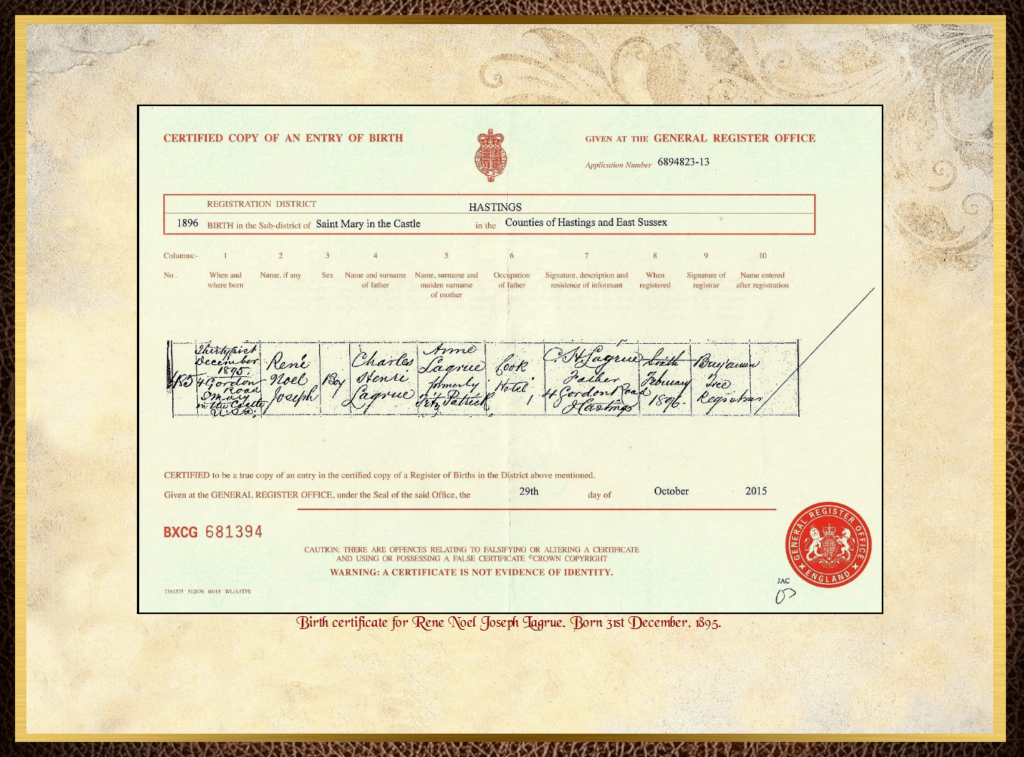 CERTIFIED COPY OF AN ENTRY OF BIRTH
GIVEN AT THE GENERAL REGISTER OFFICE
Application Number 6894823-13
REGISTRATION DISTRICT HASTINGS
1896 BIRTH in the Sub-district of Saint Mary in the Castle in the Counties of Hastings and East Sussex
Columns:- 1 2 3 4 5 6 7 8 9 10
No. When and Name, if any Sex Name and surname Name, surname and Occupation Signature, description and When Signature of Name entered
where born of father maiden surname of father residence of informant registered registrar after registration
of mother
Thirty first
December
1895
4 Gordon
Road
S. Mary
in the Castle
U.S.D.
René
Noel
Joseph
Boy
Charles
Henri
Lagrue
Anne
Lagrue
formerly
Fitz Patrick
Cook
Hotel
C. H. Lagrue
Father
4 Gordon Road
Hastings
Sixth
February
1896
Benjamin
Tree
Registrar
CERTIFIED to be a true copy of an entry in the certified copy of a Register of Births in the District above mentioned.
Given at the GENERAL REGISTER OFFICE, under the Seal of the said Office, the 29th day of October 2015
BXCG 681394
CAUTION: THERE ARE OFFENCES RELATING TO FALSIFYING OR ALTERING A CERTIFICATE
AND USING OR POSSESSING A FALSE CERTIFICATE ©CROWN COPYRIGHT
WARNING: A CERTIFICATE IS NOT EVIDENCE OF IDENTITY.
GENERAL REGISTER OFFICE
ENGLAND
JAC
Birth certificate for Rene Noel Joseph Lagrue. Born 31st December, 1895.